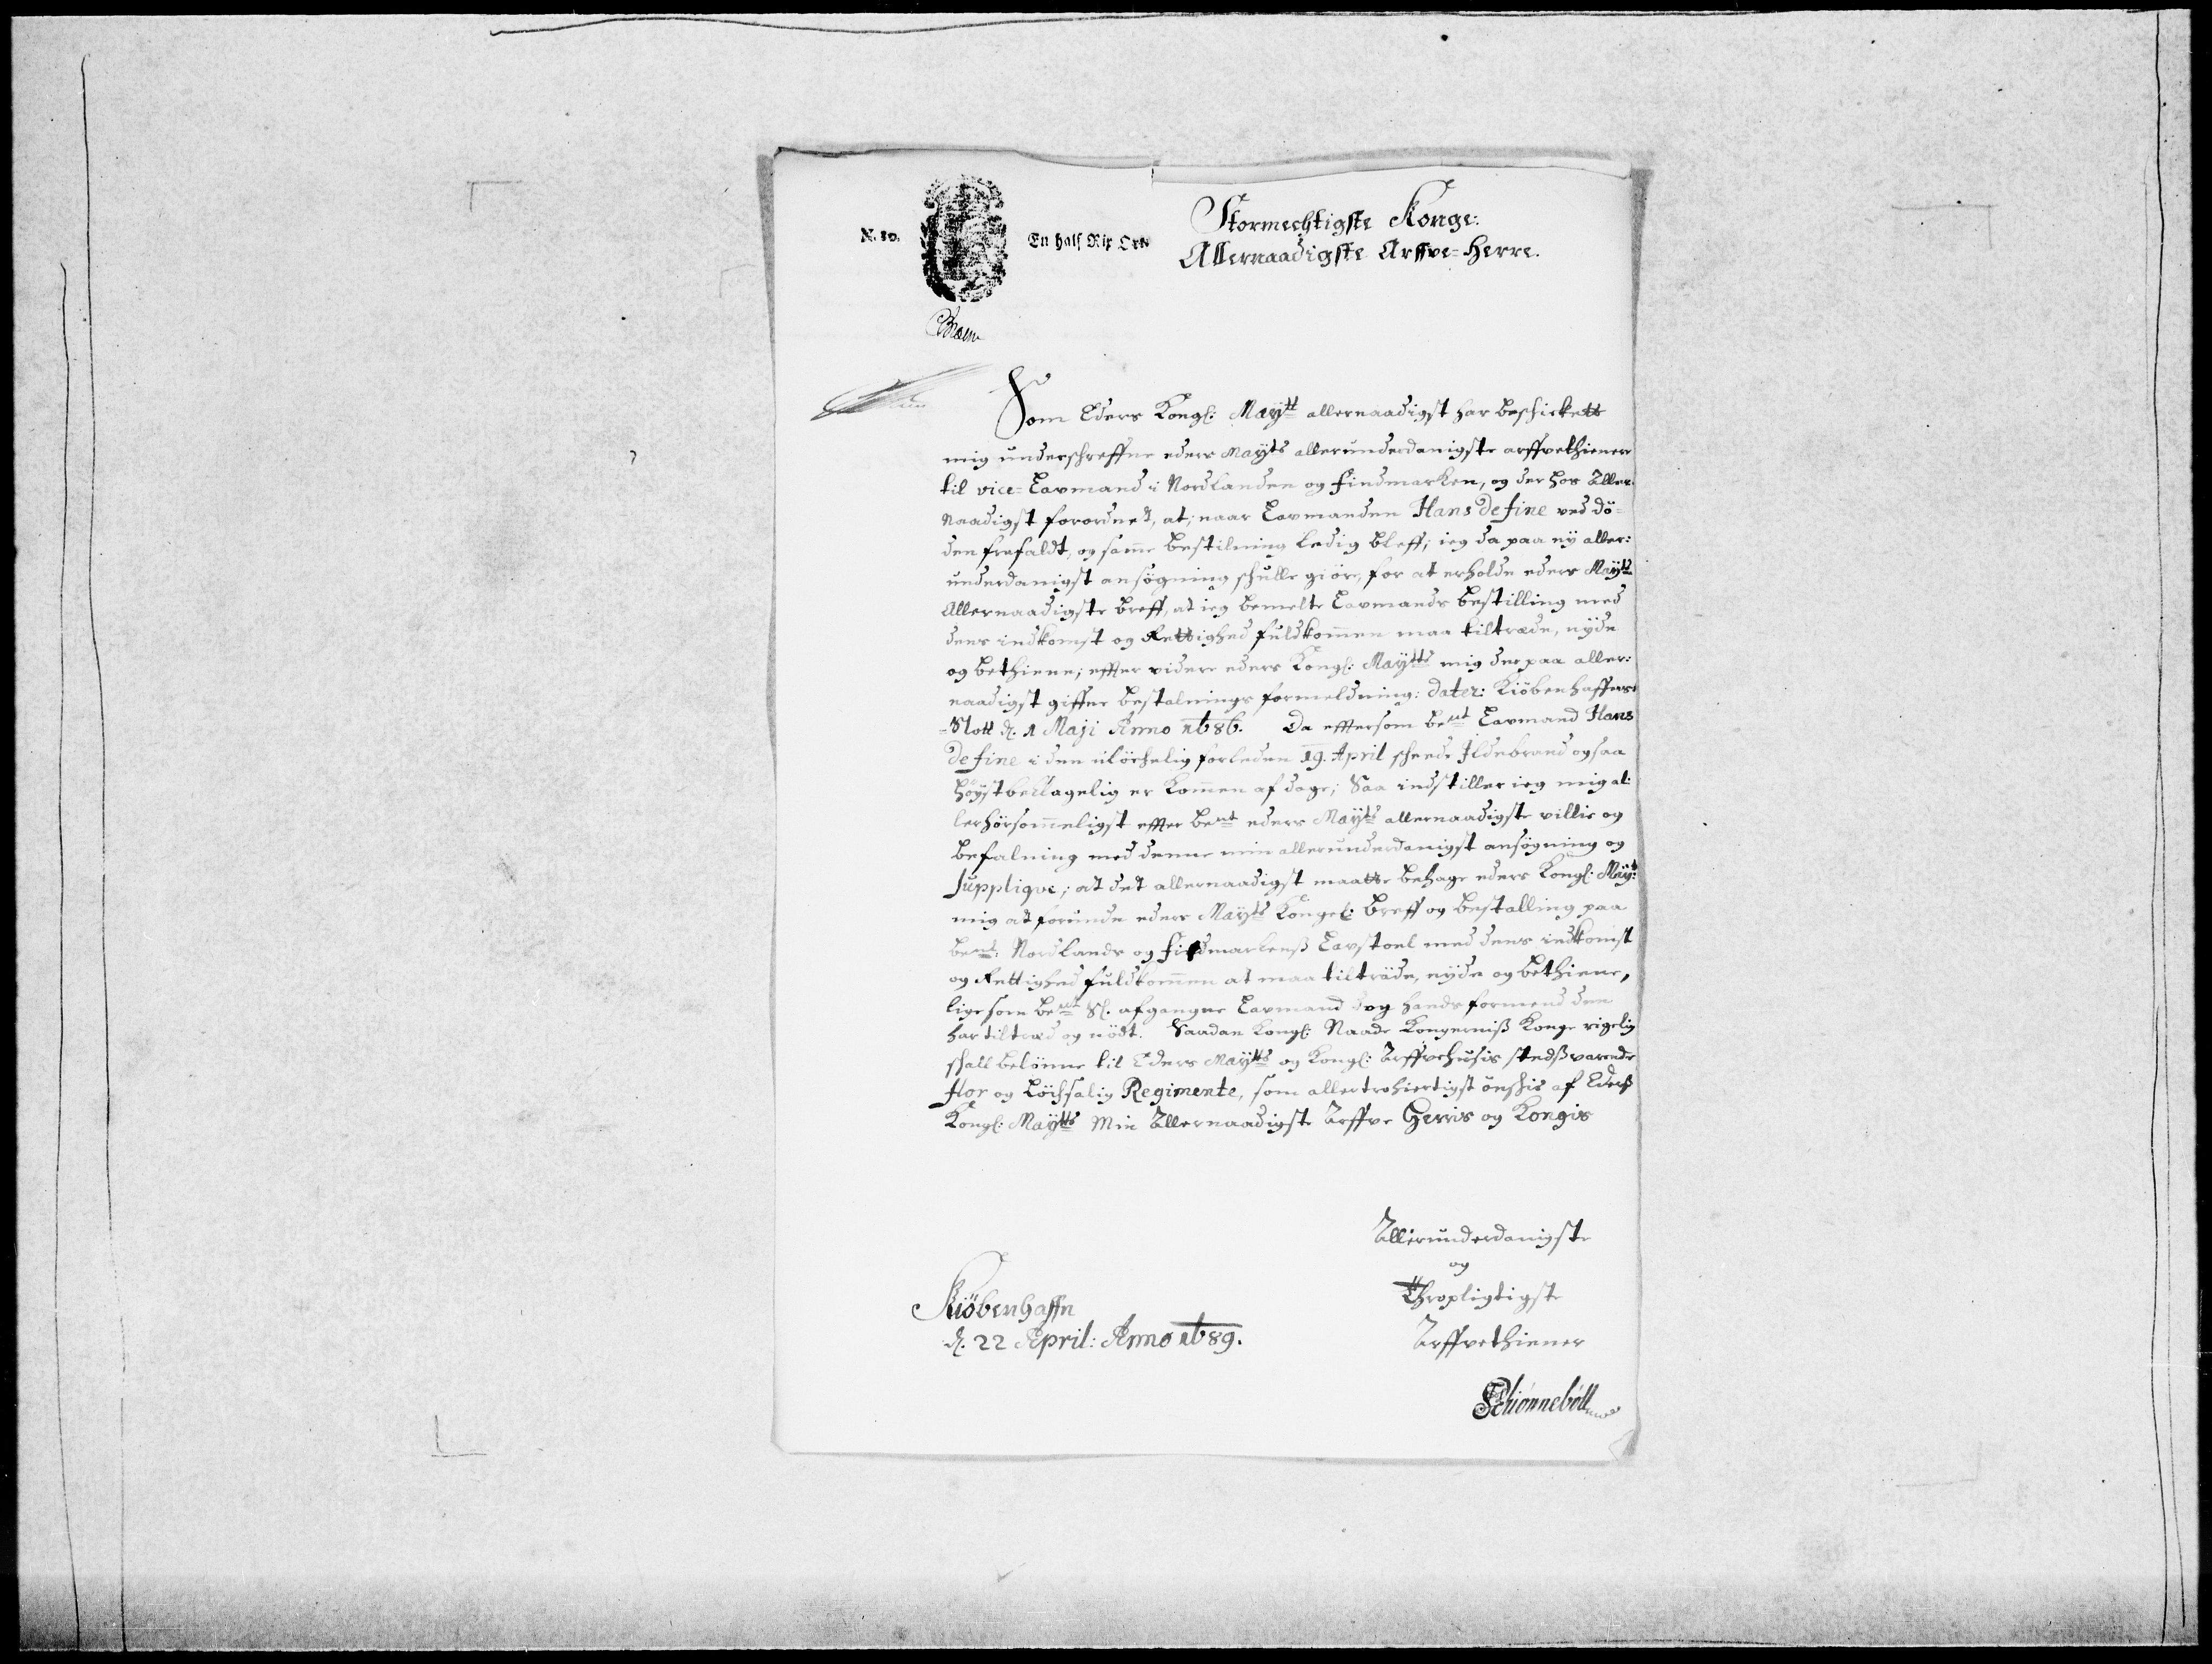 N. 30.
En half Rix Ort
Stormechtigste Konge:
Allernaadigste Arffve=Herre.
Som Eders Kongl: Maytt allernaadigst har beschickett
mig underschreffne eders Mayts allerunderdanigste arffvethienere
til vice=Lavmand i Nordlanden og findmarken, og der hos Aller
naadigst forordnet, at, naar Lavmanden Hans de fine ved dö=
den frafaldt, og samme bestilning ledig bleff; ieg da paa ny aller:
underdanigst ansøgning schulle giöre, for at erholde eders Mayts
Allernaadigste breff, at ieg bemelte Lavmands bestilling med
dens indkomst og Rettighed fuldkommen maa tiltræde, nyde
og bethiene; effter videre eders Kongl: Maytts mig der paa aller:
naadigst giffne bestalnings formeldning: dater: Kiöbenhaffens
=Slott d. 1 Maji Anno 1686. Da efftersom bent Lavmand Hans
de fine i den ulöchelig forleden 19. April scheede Ildebrand ogsaa
höystbeclagelig er kommen af dage; Saa indstiller ieg mig al:
lerhörsommeligst effter bent eders Mayts allernaadigste villie og
befalning med denne min allerunderdanigst ansøgning og
supplique; at det allernaadigst maatte behage eders Kongl: Mayts
mig at forunde eders Mayts Kongel: breff og bestalling paa
bent: Nordlands og findmarkens Lavstoel med dens indkomst
og Rettighed fuldkommen at maa tiltræde, nyde og bethiene,
lige som bent Sl. afgangne Lavmand og hands formend den
har tiltræd og nödt. Saadan kongl: Naade Kongernis Konge rigelig
schall belönne til Eders Maytts og Kongl: Arffvehusis stedsvarende
flor og Löchsalig Regimente, som allertrohiertigst önschis af Eders
Kongl: Maytts Min Allernaadigste Arffve Herris og Kongis
Allerunderdanigste
og
Thropligtigste
Arffvethiener
Kiöbenhaffn
d. 22 April: Anno 1689.
Schiönneböll